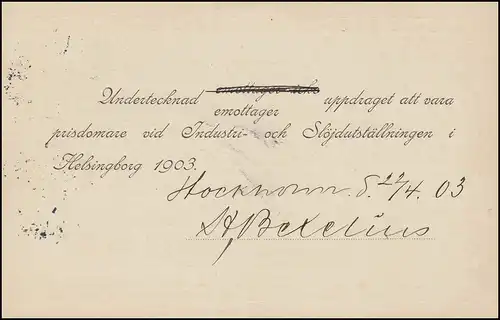 Undertecknad emottager icke uppdraget att vara
emottager
prisdomare vid Industri- och Slöjdutställningen i
Helsingborg 1903.
Stockholm d. 27/4. 03